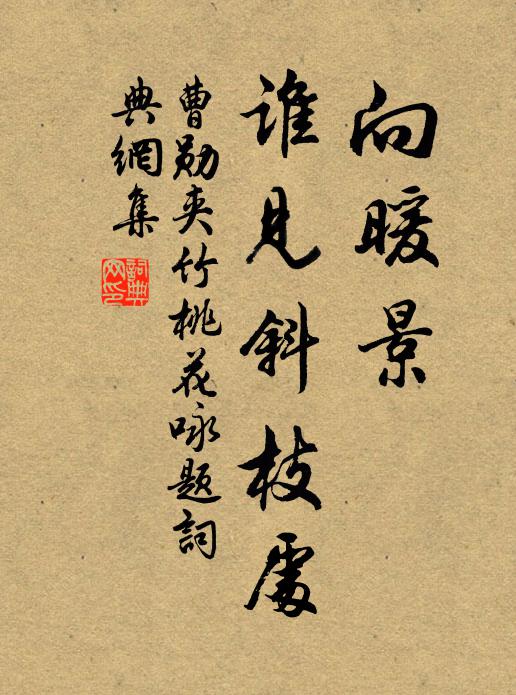 向暖景
谁见斜枝處
曹勋夹竹桃花咏题詞
典網集
詞典
网印